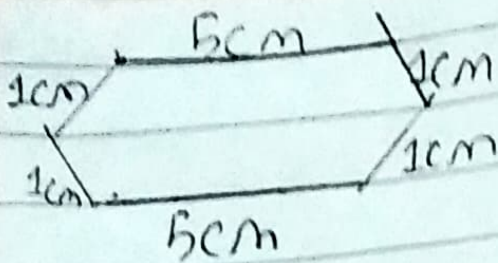 5cm
1cm 1cm
1cm 1cm
5cm